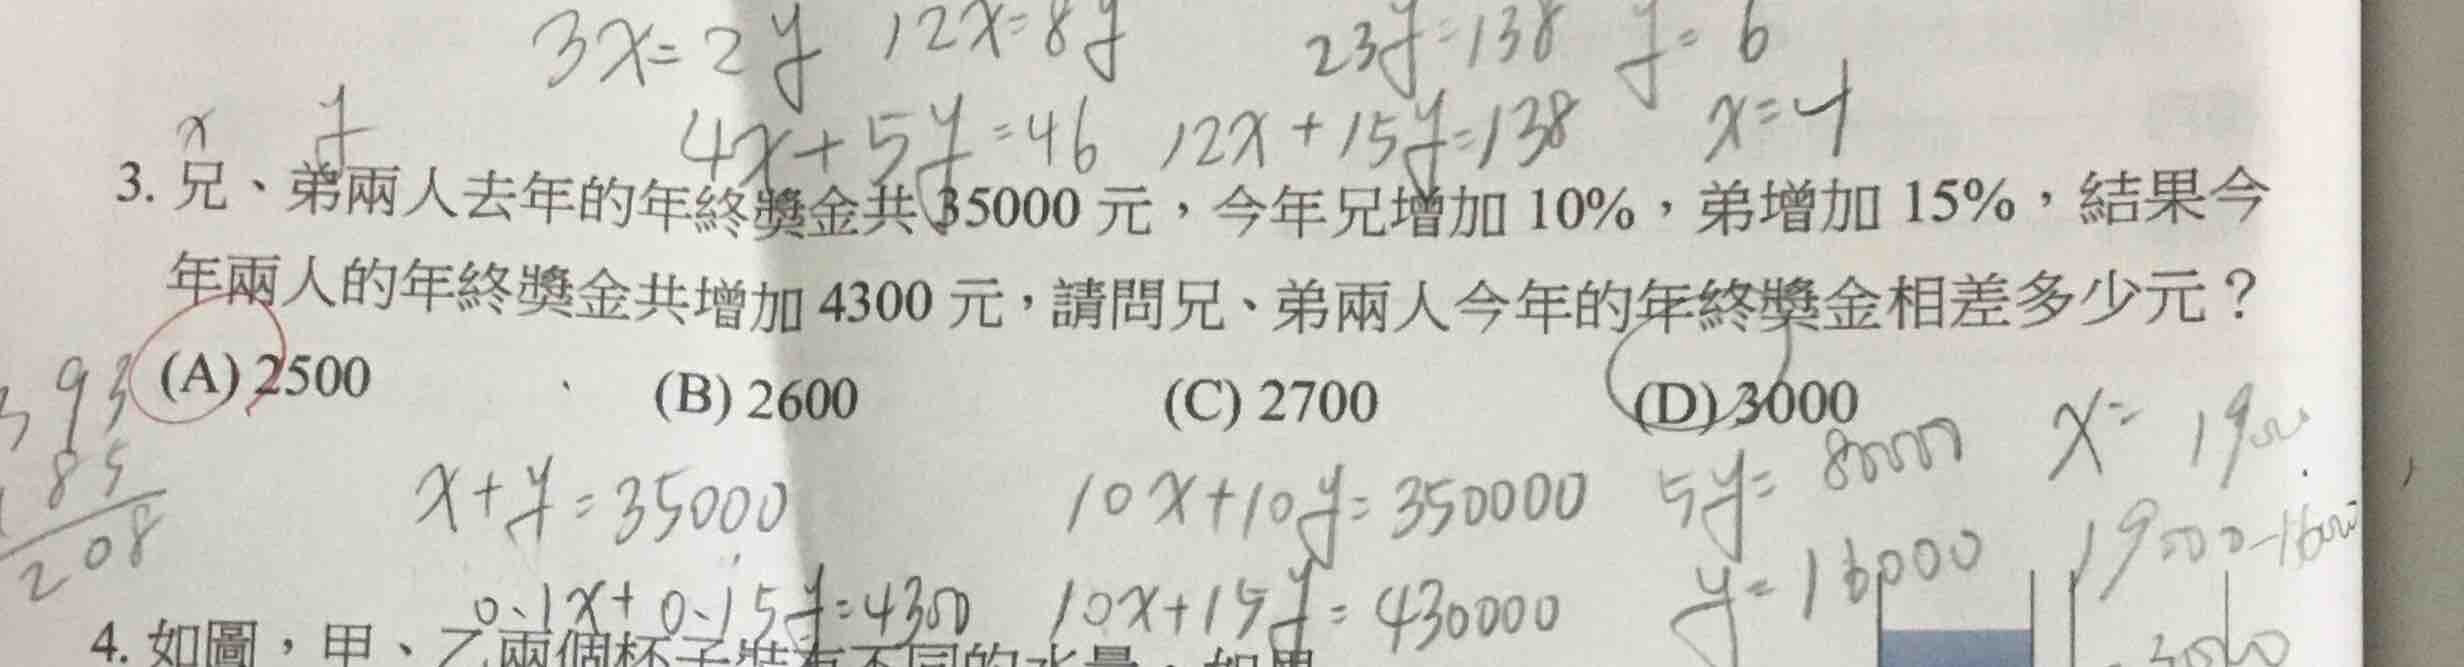 3x=2y 12x=8y 23y=138 y=6
x y 4x+5y=46 12x+15y=138 x=4
3. 兄、弟兩人去年的年終獎金共 35000 元，今年兄增加 10%，弟增加 15%，結果今
年兩人的年終獎金共增加 4300 元，請問兄、弟兩人今年的年終獎金相差多少元？
(A) 2500 (B) 2600 (C) 2700 (D) 3000
393
85
208
x+y=35000 10x+10y=350000 5y=80000
0.1x+0.15y=4300 10x+15y=430000 y=16000
4. 如圖，甲、乙兩個杯子裝有不同的水量，如果